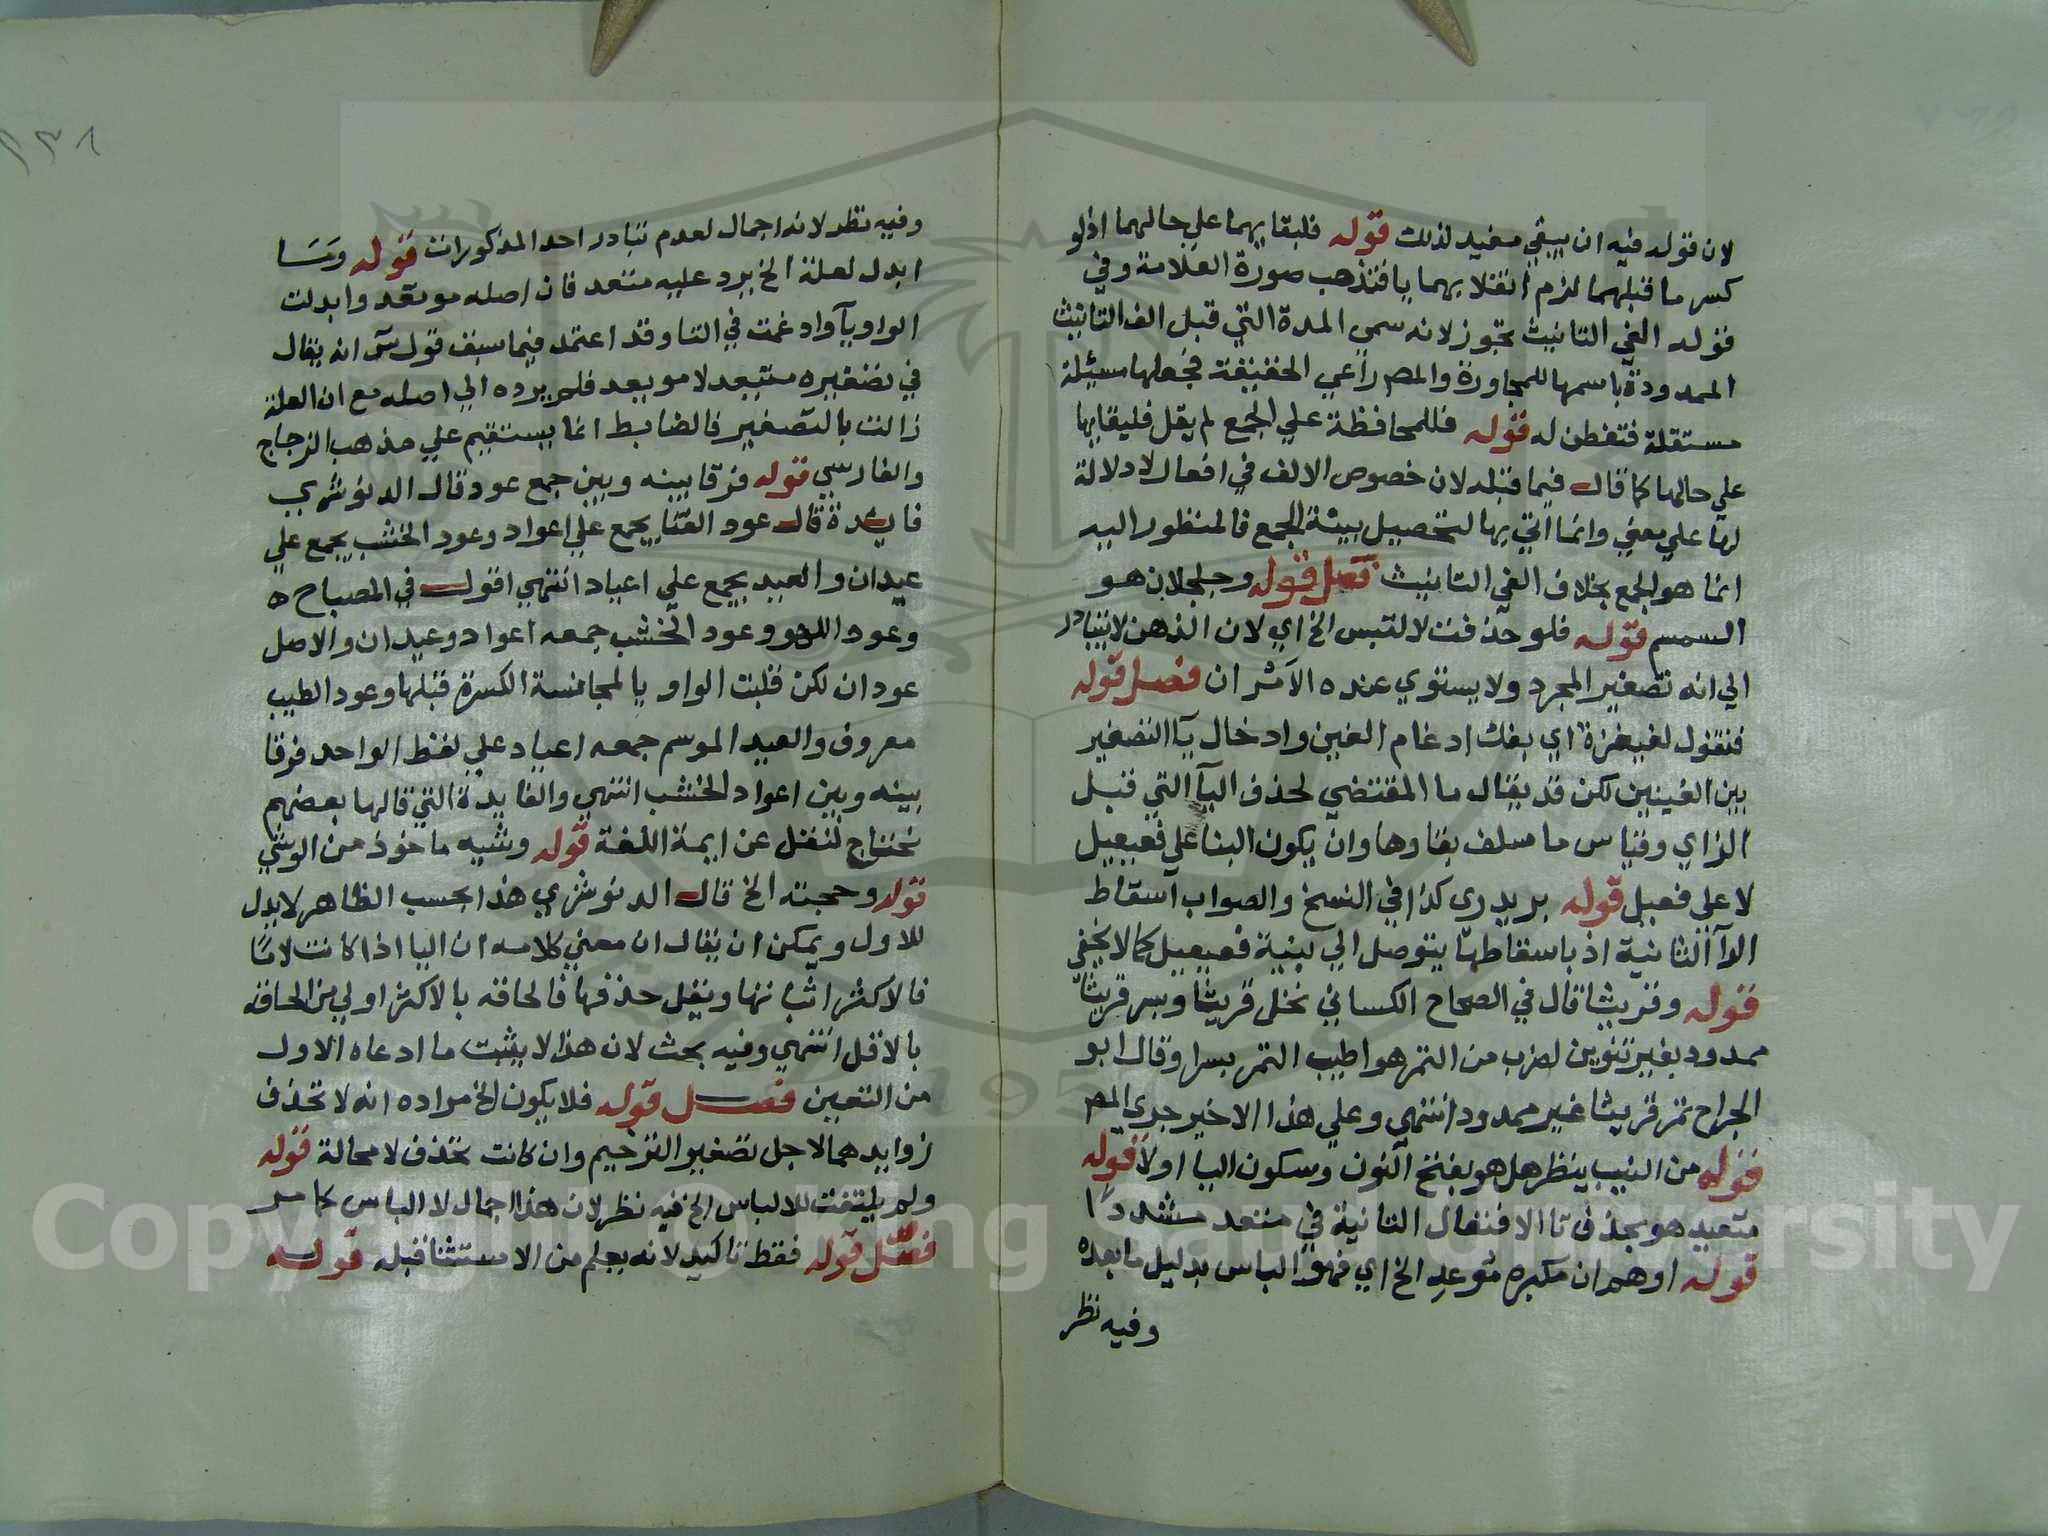 لان قوله فيه ان يبقي مفيد لذلك قوله فلبقايهما علي حالهما اذ لو
كسر ما قبلهما لزم انقلابهما يا فتذهب صورة العلامة وفي
قوله الفي التانيث تجوز لانه سمي المدة التي قبل الف التانيث
الممدودة باسمها للمجاورة والمص راعي الحقيقة فجعلها مسئلة
مستقلة فتفطن له قوله فللمحافظة علي الجمع لم يقل فليقايها
علي حالها كما قال فيما قبله لان خصوص الالف في افعال لا دلالة
لها علي معني وانما اتي بها لتحصيل بيئة الجمع فالمنظور اليه
انما هو الجمع بخلاف الفي التانيث فصل قوله وجلجلان هو
السمسم قوله فلو حذفت لالتبس الخ اي لان الذهن لا يتبادر
الي انه تصغير المجرد ولا يستوي عنده الامران فصل قوله
فنقول لغيغيزة اي بفك ادغام الغين وادخال يا التصغير
بين الغينين لكن قد يقال ما المقتضي لحذف اليا التي قبل
الزاي وقياس ما سلف بقاوها وان يكون البنا علي فعيعيل
لا علي فعيل قوله بريدري كذا في النسخ والصواب اسقاط
الرآ الثانية اذ باسقاطها يتوصل الي بنية فعيعيل كما لا يخفي
قوله وقريثا قال في الصحاح الكسائي نخل قريثا وبسر قريثا
ممدود بغير تنوين لضرب من التمر هو اطيب التمر بسرا وقال ابو
الجراح تمر قريثا غير ممدود انتهي وعلي هذا الاخير جري المص
قوله من النيب ينظر هل هو بفتح النون وسكون اليا اولا قوله
متعيد هو بحذف تا الافتعال الثانية في متعد مشددا
قوله اوهم ان مكبره موعد الخ اي فهو الباس بدليل ما بعده
وفيه نظر
٢٣٨
وفيه نظر لانه اجمال لعدم تبادر احد المذكورات قوله ومَسَا
ابدل لعلة الخ يرد عليه متعد فان اصله موتعد وابدلت
الواو يآ وادغمت في التا وقد اعتمد فيما سبق قول س انه يقال
في تصغيره متيعد لا مويعد فلم يرده الي اصله مع ان العلة
زالت بالتصغير فالضابط انما يستقيم علي مذهب الزجاج
والفارسي قوله فرقا بينه وبين جمع عود قال الدنوشري
فايدة قال عود القنا يجمع علي اعواد وعود الخشب يجمع علي
عيدان والعيد يجمع علي اعياد انتهي اقول في المصباح ه
وعود اللهو وعود الخشب جمعه اعواد وعيدان والاصل
عودان لكن قلبت الواو يا لمجانسة الكسرة قبلها وعود الطيب
معروف والعيد الموسم جمعه اعياد علي لفظ الواحد فرقا
بينه وبين اعواد الخشب انتهي والفايدة التي قالها بعضهم
تحتاج لنقل عن ايمة اللغة قوله وشيه ماخوذ من الوشي
قوله وحجته الخ قال الدنوشري هذا بحسب الظاهر لا يدل
للاول ويمكن ان يقال ان معني كلامه ان اليا اذا كانت لامًا
فالاكثر اثباتها ويقل حذفها فالحاقه بالاكثر اولي من الحاقه
بالاقل انتهي وفيه بحث لان هذا لا يثبت ما ادعاه الاول
من التعين فصل قوله فلا يكون الخ مراده انه لا تحذف
زوايدهما لاجل تصغير الترخيم وان كانت تحذف لا محالة قوله
ولم يلتفت للالباس الخ فيه نظر لان هذا اجمال لا الباس كما مر
فصل قوله فقط تاكيد لانه يعلم من الاستثنا قبله قوله